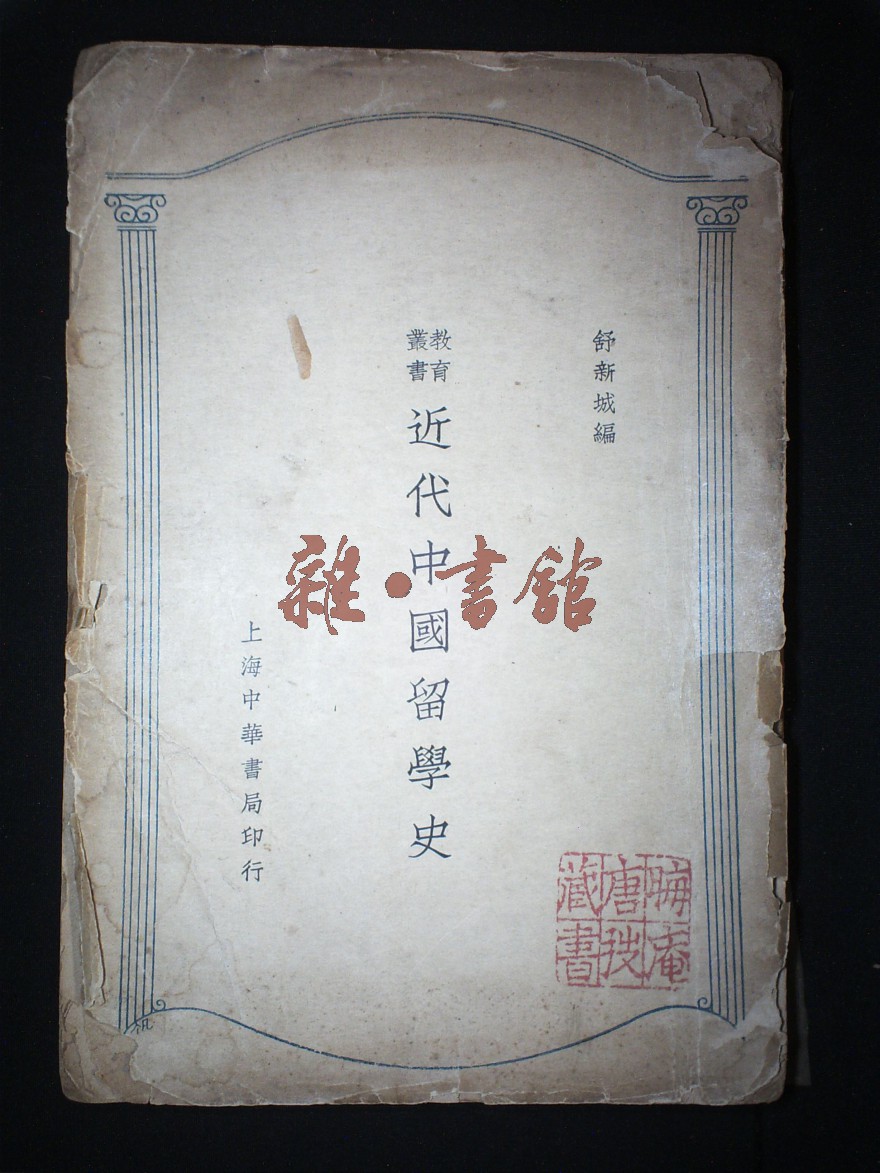 舒新城編
教育
叢書
近代中國留學史
上海中華書局印行
雜•書館
晦庵
唐弢
藏書